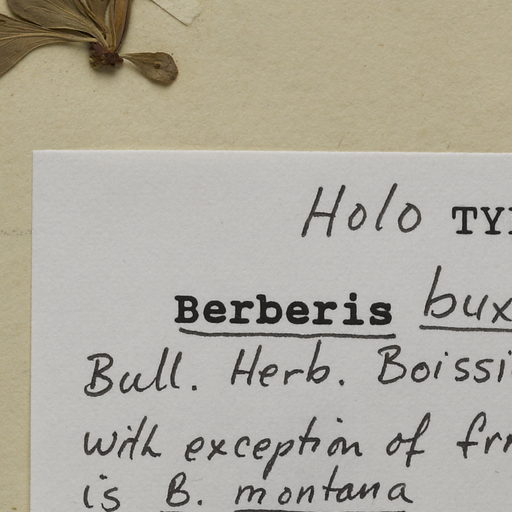 Holo TYP
Berberis bux
Bull. Herb. Boissi
with exception of
is B. montana